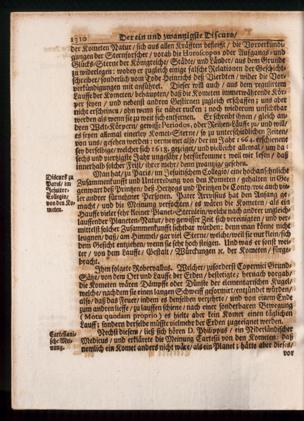 1310 Der ein und zwantzigste Discurs/
der Kometen Natur/ sich aus allen Kräfften befleißt/ die Vorverkündi-
gungen der Sternforscher/ vorab die Horoscopos oder Aufgangs- und
Glücks-Sterne der Königreiche/ Städte/ und Länder/ aus dem Grunde
zu widerlegen: wobey er zugleich einige falsche Relationen der Geschicht-
schreiber/ sonderlich vom Tode Heinrichs deß Vierdten/ wider die Vor-
verkündigungen mit anführet. Dieser will auch/ aus dem regulirten
Lauffe der Kometen/ behaupten/ daß die Kometen immerwährende Kör-
per seyen/ und nebenst andern Gestirnen zugleich erschaffen; uns aber
nicht erscheinen/ ohn wenn sie näher zu uns kommen; noch wiederum unsichtbar
werden als wenn sie zu weit sich entfernen. Er schreibt ihnen/ gleich an-
dern Welt-Körpern/ gewisse Periodos, oder Zeiten-Läuffe zu/ und will/
es seyen allemal einerley Kometen-Sterne/ so zu unterschiedlichen Zeiten
von uns/ gesehen werden: vermeint also/ der im Jahr 1664. erschienene
sey derselbige/ welcher sich 1618. gezeiget/ und vielleicht allemal/ in sechs
und viertzigste Jahr ungefähr/ herfürkomme; weil wir lesen/ daß
innerhalb solcher Frist/ ihrer mehr/ denn zwantzig/ gesehen.
Discurs zu
Paris/ im
Jesuiter-
Collegio/
von den Ko-
meten.
Man hat/ zu Paris/ im Jesuitischen Collegio/ eine hochansehnliche
Zusammenkunfft und Unterredung von den Kometen/ gehalten in Ge-
genwart deß Printzen/ deß Hertzogs und Printzen de Conty, wie auch vie-
ler andrer fürnehmer Personen. Pater Arrosius hub den Anfang ge-
macht/ und die Meynung verfochten/ es wären die Kometen/ als ein
Hauffe vieler sehr kleiner Planet-Sternlein/ welche nach andrer ungleich-
lauffender Planeten-Natur/ bey gewisser Zeit sich vereinigten/ und ver-
mittelst solcher Zusammenkunfft sichtbar würden: denn man könne nicht
leugnen/ daß/ am Himmel/ gar viel Sterne/ welche/ weil sie nur klein/ sich
dem Gesicht entziehen/ wenn sie sehr hoch steigen. Und was er sonst wei-
ter/ von dem Lauffe/ Gestalt/ Würckungen ꝛc. der Kometen/ fürge-
bracht.
Ihm folgete Robervallus. Welcher/ zusoderst Copernici Grund-
Sätze/ von dem Ort und Lauffe der Erden/ befestigte; hernach vorgab/
die Kometen wären Dämpffe oder Dünste der elementarischen Kugel/
welche/ nachdem sie einen langen Schweiff geformiret/ entzündet würden/
also/ daß das Feuer/ indem es denselben verzehrte/ und von einem Ende
zum andern lieffe/ zu lauffen schiene; nach einer sonderbaren Bewegung
(Motu quodam proprio) es hielte aber kein Komet einen täglichen
Lauff; sondern derselbe müßte vielmehr der Erden zugeeignet werden.
Cartesiani-
sche Mei-
nung.
Nechst diesem/ ließ sich hören D. Philippus/ ein Niderländischer
Medicus/ und erklärte die Meinung Cartesii von den Kometen: daß
nemlich ein Komet anders nicht wäre/ als ein Planet; hätte aber dieses/
vor